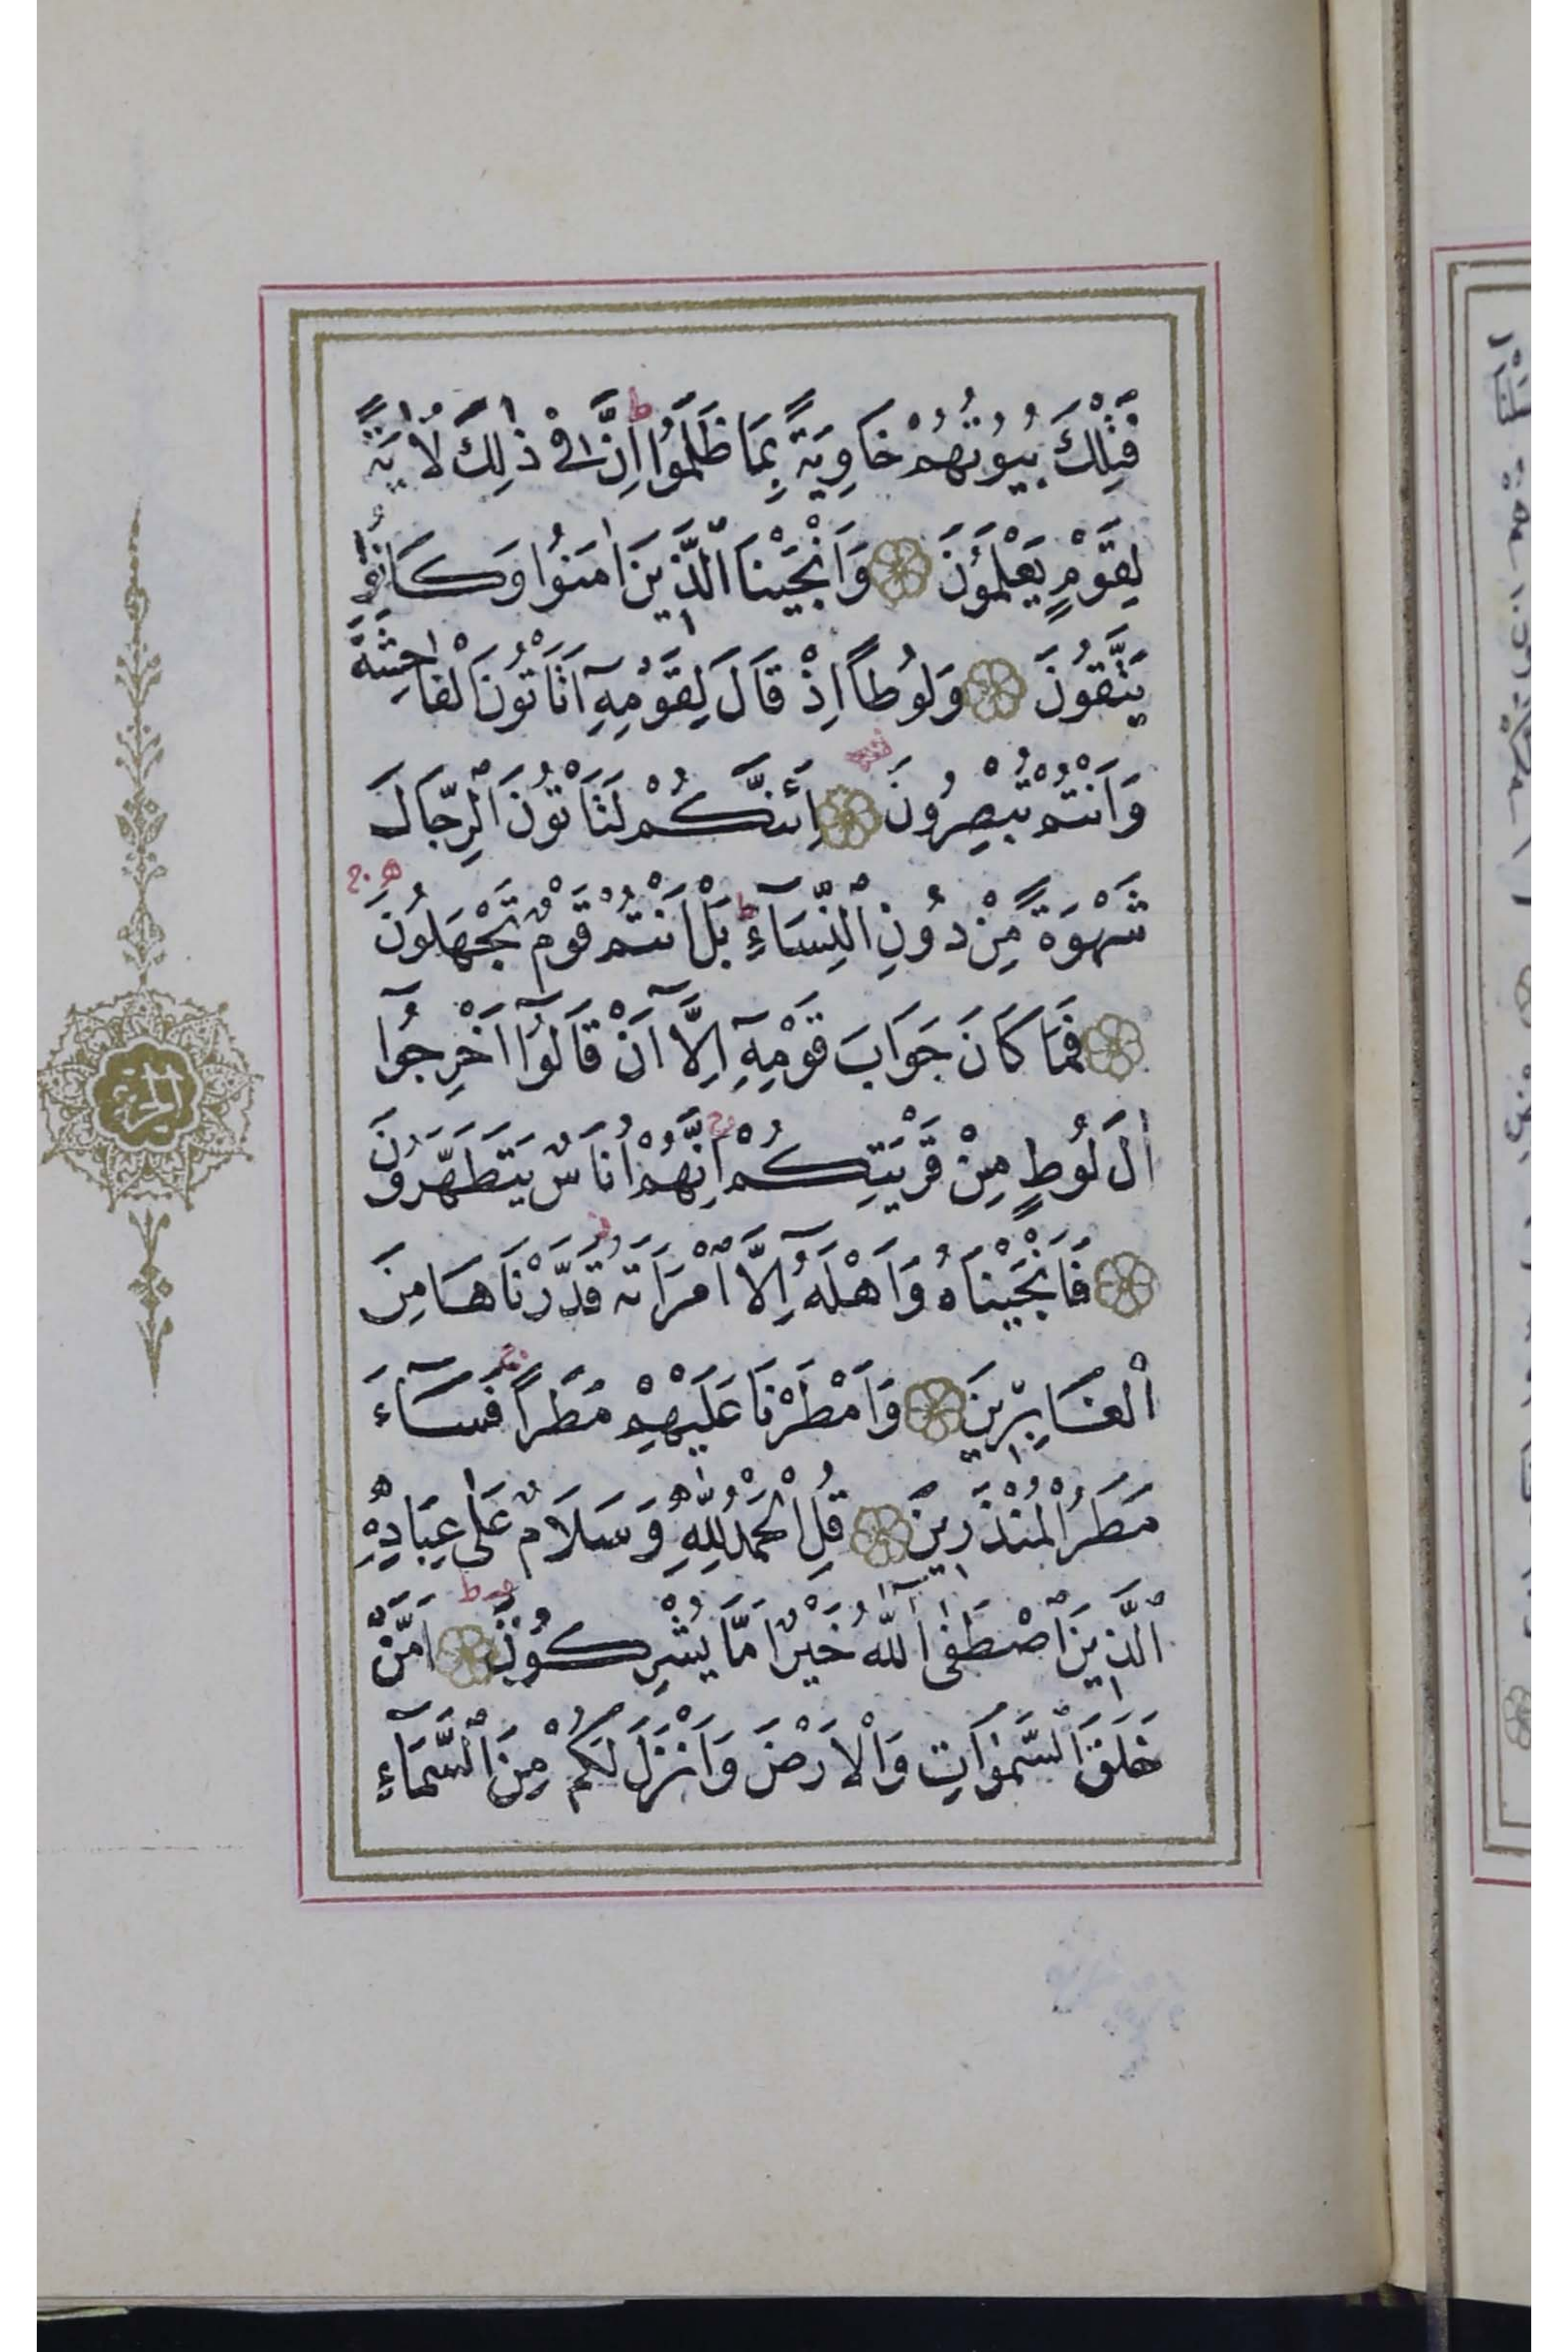 فَتِلْكَ بُيُوتُهُمْ خَاوِيَةً بِمَا ظَلَمُوا ط اِنَّ فٖى ذٰلِكَ لَاٰيَةً
لِقَوْمٍ يَعْلَمُونَ وَاَنْجَيْنَا الَّذٖينَ اٰمَنُوا وَكَانُوا
يَتَّقُونَ وَلُوطًا اِذْ قَالَ لِقَوْمِهٖٓ اَتَاْتُونَ الْفَاحِشَةَ
وَاَنْتُمْ تُبْصِرُونَ اَئِنَّكُمْ لَتَاْتُونَ الرِّجَالَ
شَهْوَةً مِنْ دُونِ النِّسَٓاءِ ط بَلْ اَنْتُمْ قَوْمٌ تَجْهَلُونَ
فَمَا كَانَ جَوَابَ قَوْمِهٖٓ اِلَّٓا اَنْ قَالُٓوا اَخْرِجُٓوا
اٰلَ لُوطٍ مِنْ قَرْيَتِكُمْ ج اِنَّهُمْ اُنَاسٌ يَتَطَهَّرُونَ
فَاَنْجَيْنَاهُ وَاَهْلَهُٓ اِلَّا امْرَاَتَهُ قَدَّرْنَاهَا مِنَ
الْغَابِرٖينَ وَاَمْطَرْنَا عَلَيْهِمْ مَطَرًا ج فَسَٓاءَ
مَطَرُ الْمُنْذَرٖينَ قُلِ الْحَمْدُ لِلّٰهِ وَسَلَامٌ عَلٰى عِبَادِهِ
الَّذٖينَ اصْطَفٰى آٰللّٰهُ خَيْرٌ اَمَّا يُشْرِكُونَ اَمَّنْ
خَلَقَ السَّمٰوَاتِ وَالْاَرْضَ وَاَنْزَلَ لَكُمْ مِنَ السَّمَٓاءِ